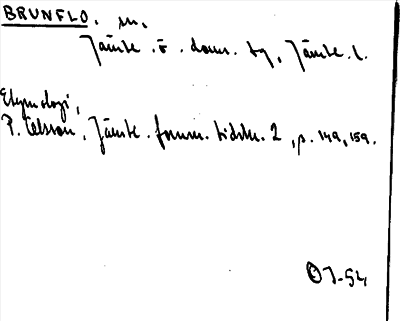 BRUNFLO. sn.
Jämtl. ö. doms. tg, Jämtl. l.
Etymologi,
P. Olsson, Jämtl. fornm. tidskr. 2, p. 149, 159.
OJ-54